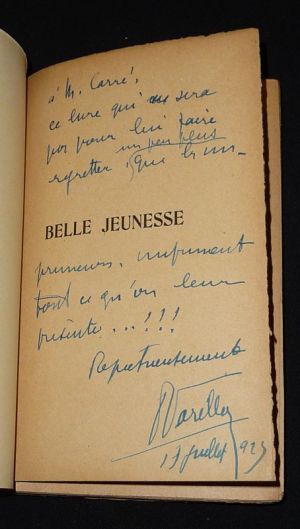 à M. Carré,
ce livre qui sera
pas pour lui faire
un peu plus
regretter que les im-
BELLE JEUNESSE
primeurs, impriment
tout ce qu'on leur
présente...!!!
Respectueusement
17 juillet